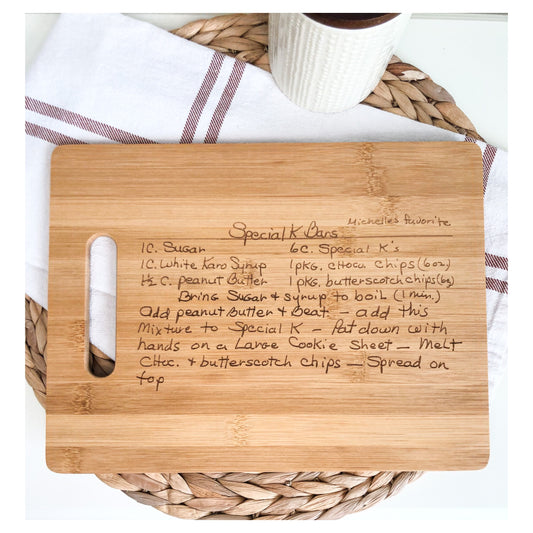 Michelle's favorite
Special K Bars
1C. Sugar 6C. Special K's
1C. White Karo Syrup 1 pkg. choco chips (6 oz)
1½ C. peanut Butter 1 pkg. butterscotch chips (6oz)
Bring Sugar & syrup to boil (1 min.)
add peanut Butter & Beat - add this
Mixture to Special K - Pat down with
hands on a Large Cookie Sheet - Melt
Choc. & butterscotch chips - Spread on
top